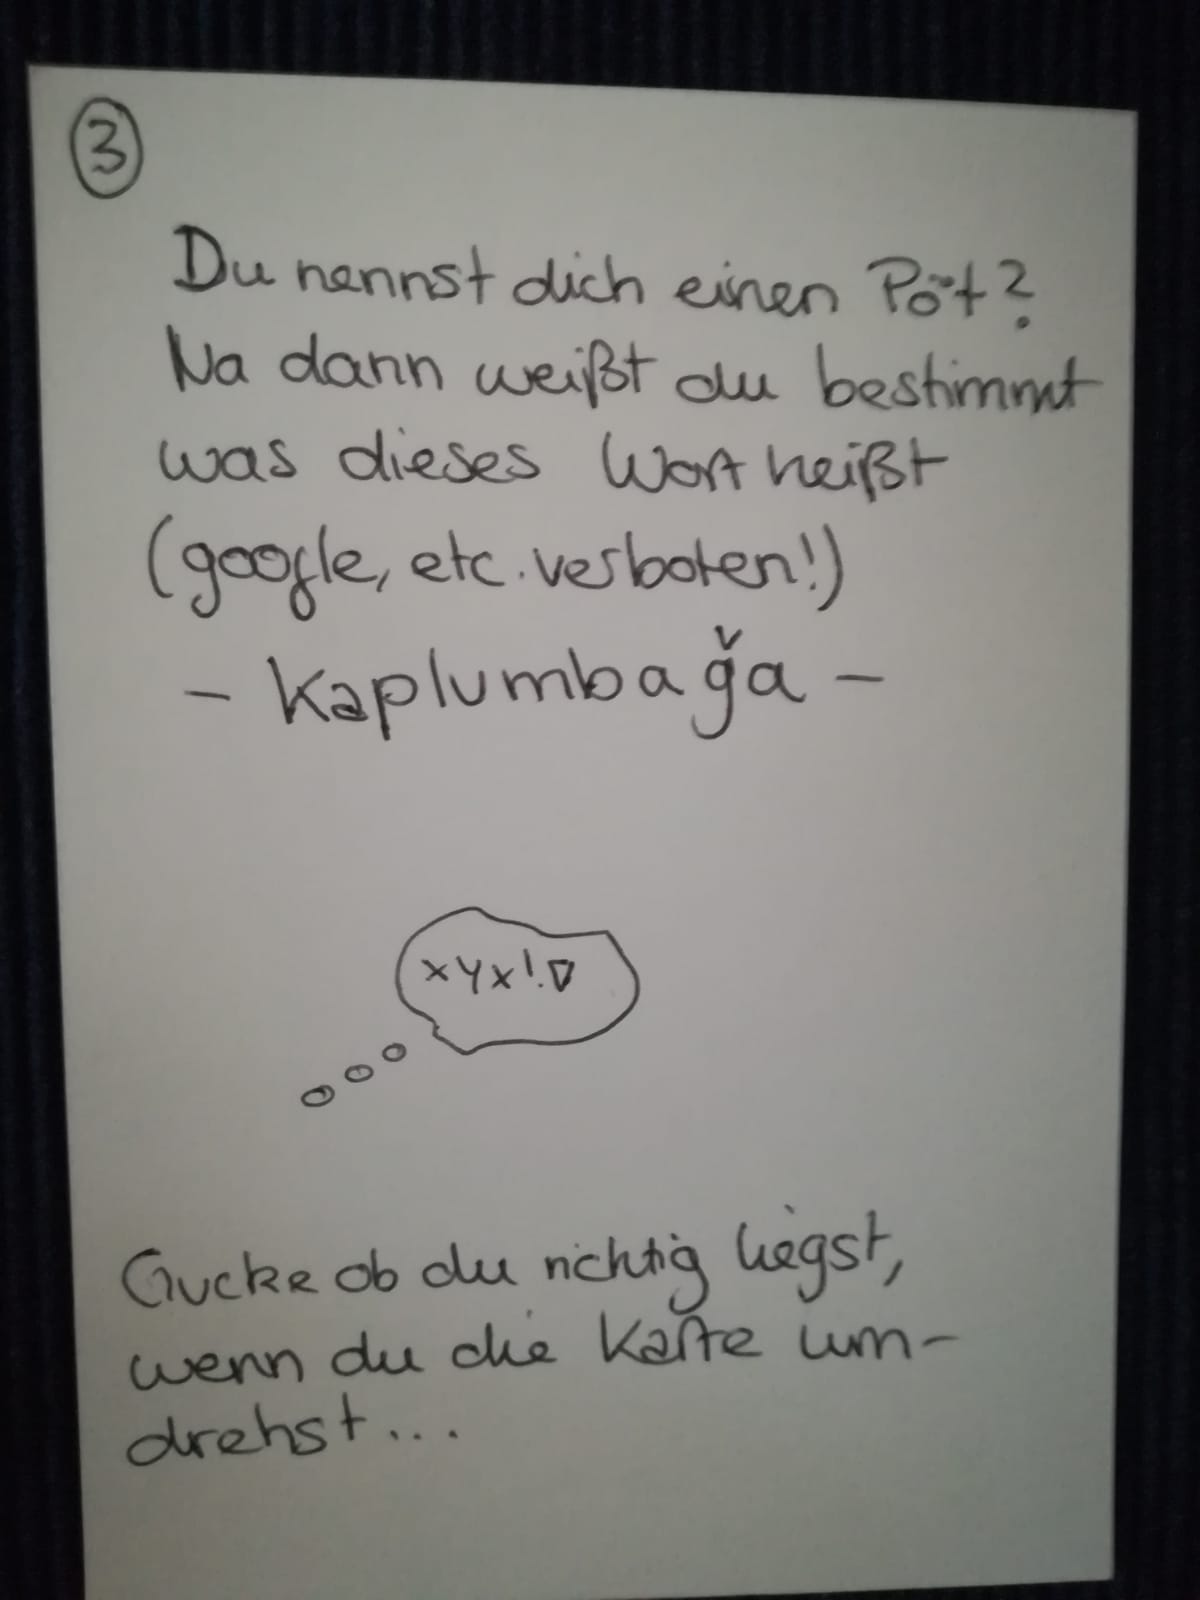 3
Du nennst dich einen Pöt?
Na dann weißt du bestimmt
was dieses Wort heißt
(google, etc. verboten!)
- Kaplumbağa -
xyx!.▽
Gucke ob du richtig liegst,
wenn du die Karte um-
drehst...